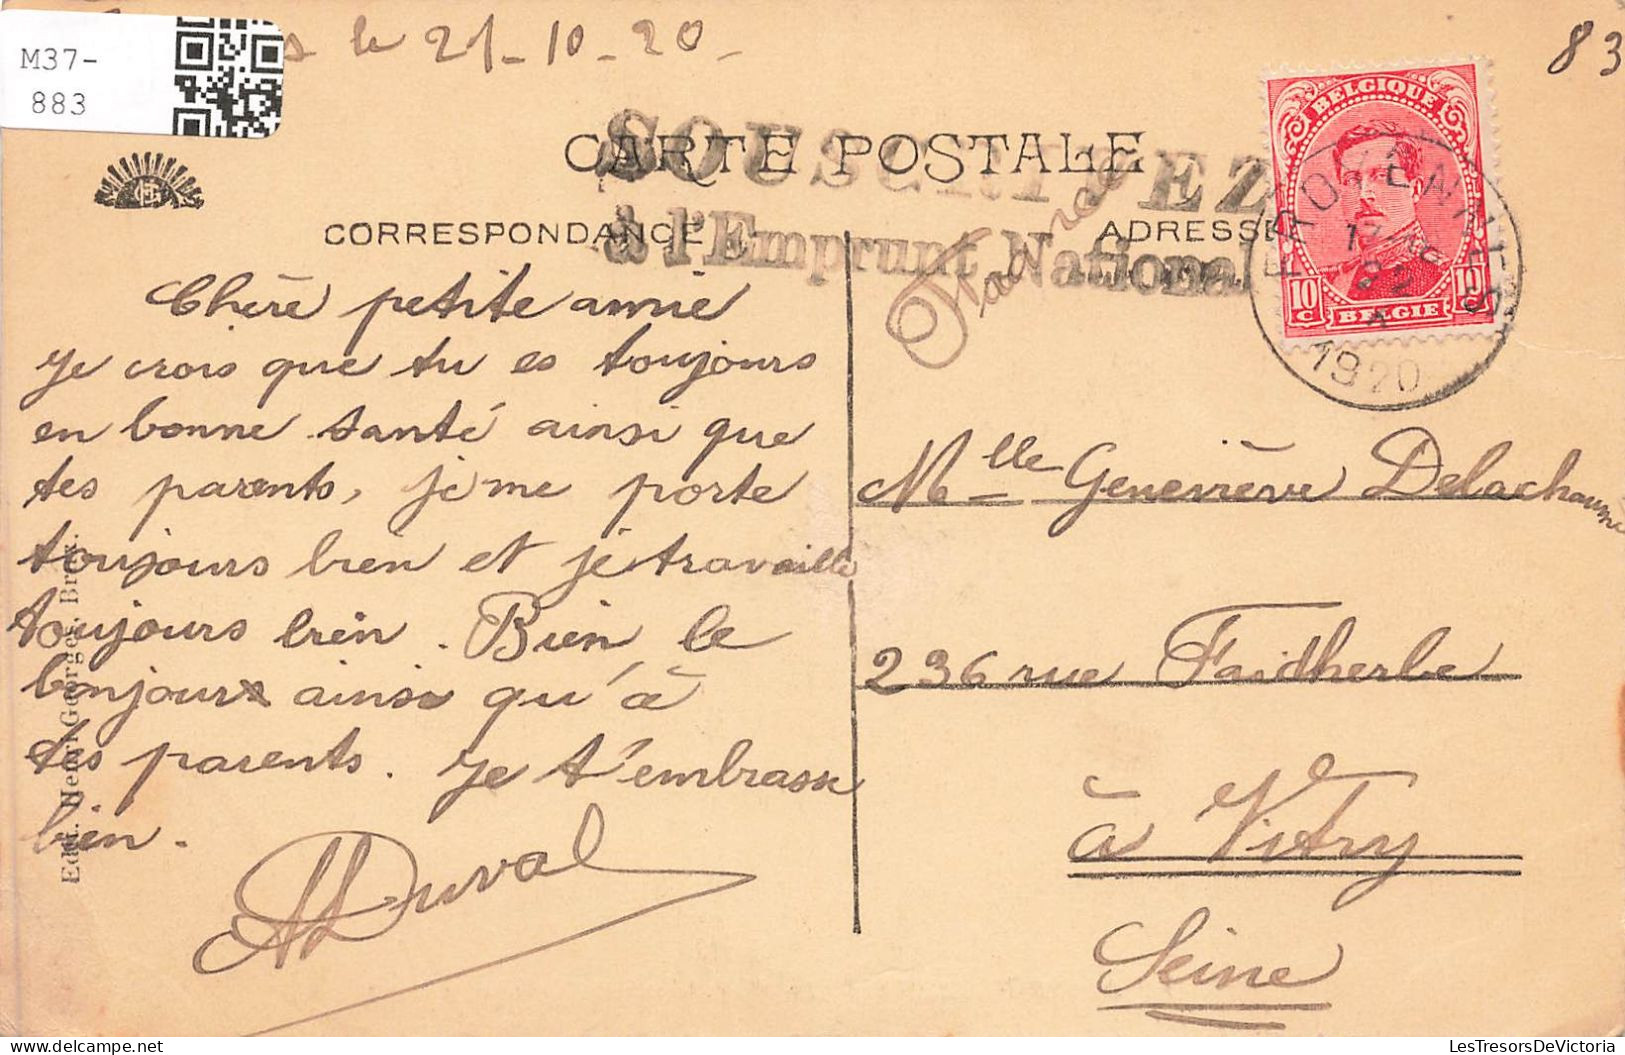 M37-
883
s le 21-10-20-
83
CARTE POSTALE
SOUSCRIVEZ
à l'Emprunt National
CORRESPONDANCE
ADRESSE
France
BELGIQUE
10 c
10 c
BELGIE
FROYENNES
1920
Chère petite amie
je crois que tu es toujours
en bonne santé ainsi que
tes parents, je me porte
toujours bien et je travaille
toujours bien. Bien le
bonjour ainsi qu'à
tes parents. Je t'embrasse
bien.
ADuval
Mlle Geneviève Delachaume
236 rue Faidherbe
à Vitry
Seine
Edit. Henri Georges, Brux.
LesTresorsDeVictoria